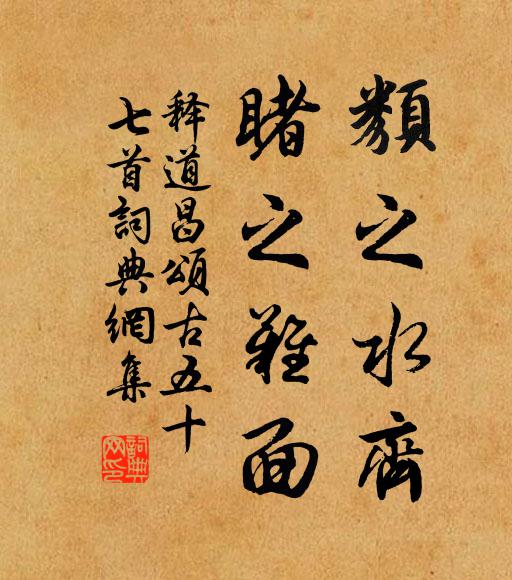 類之水齊
睹之難面
释道昌頌古五十
七首詞典網集
詞典网印